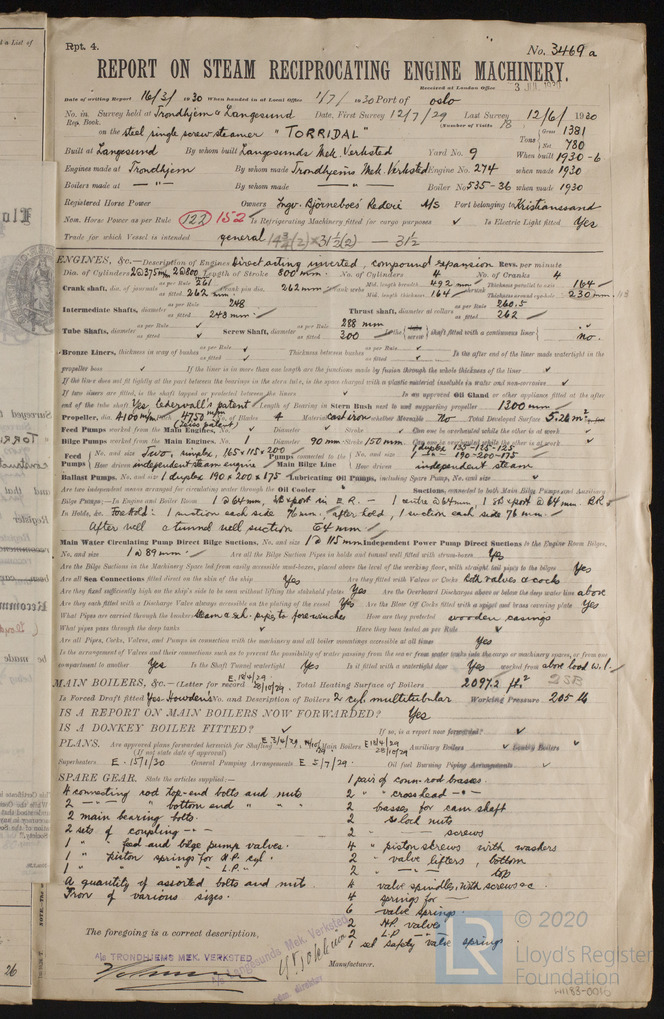 Rpt. 4.
No. 3469a
REPORT ON STEAM RECIPROCATING ENGINE MACHINERY.
Received at London Office 3 JUL 1930
Date of writing Report 16/3/ 1930 When handed in at Local Office 1/7/ 1930 Port of Oslo
No. in Survey held at Trondhjem & Langesund Date, First Survey 12/7/29 Last Survey 12/6/ 1930
Reg. Book. (Number of Visits 18)
on the steel single screw steamer "TORRIDAL" Tons Gross 1381
Net 730
Built at Langesund By whom built Langesunds Mek. Verksted Yard No. 9 When built 1930-6
Engines made at Trondhjem By whom made Trondhjems Mek. Verksted Engine No. 274 when made 1930
Boilers made at —"— By whom made —"— Boiler No 535-36 when made 1930
Registered Horse Power Owners Ingv. Björneboes Rederi A/S Port belonging to Kristianssand
Nom. Horse Power as per Rule 122 152 Is Refrigerating Machinery fitted for cargo purposes Is Electric Light fitted Yes
Trade for which Vessel is intended general 14 3/4 (2) × 31 1/2 (2) — 31 1/2
ENGINES, &c.—Description of Engines Direct acting inverted, compound expansion Revs. per minute
Dia. of Cylinders 2@375 m/m 2@800 Length of Stroke 800 mm. No. of Cylinders 4 No. of Cranks 4
Crank shaft, dia. of journals as per Rule 261 as fitted 262 mm. Crank pin dia. 262 mm. Crank webs Mid. length breadth 492 mm Thickness parallel to axis 164
Mid. length thickness 164 shrunk Thickness around eye-hole 230 mm.
Intermediate Shafts, diameter as per Rule 248 as fitted 248 mm Thrust shaft, diameter at collars as per Rule 260.5 as fitted 262
Tube Shafts, diameter as per Rule as fitted Screw Shaft, diameter as per Rule 288 mm as fitted 300 Is the screw shaft fitted with a continuous liner no.
Bronze Liners, thickness in way of bushes as per Rule as fitted Thickness between bushes as per Rule as fitted Is the after end of the liner made watertight in the
propeller boss If the liner is in more than one length are the joints made by fusion through the whole length of the liner
If the liner does not fit tightly at the part between the bearings in the stern tube, is the space charged with a plastic material insoluble in water and non-corrosive
If two liners are fitted, is the shaft lapped or protected between the liners Is an approved Oil Gland or other appliance fitted at the after
end of the tube shaft Yes, Cedervall's patent Length of Bearing in Stern Bush next to and supporting propeller 1300 mm
Propeller, dia. 4100 m/m Pitch 4750 m/m (Zeise patent) No. of Blades 4 Material cast iron whether Moveable No Total Developed Surface 5.24 m²
Feed Pumps worked from the Main Engines, No. Diameter Stroke Can one be overhauled while the other is at work
Bilge Pumps worked from the Main Engines, No. 1 Diameter 90 mm Stroke 150 mm. Can one be overhauled while the other is at work
Feed Pumps No. and size Two, simplex, 165×115×200 Pumps connected to the Main Bilge Line No. and size 1 duplex 135-125-125
1 — " — 190-200-175
How driven independent steam engine How driven independent steam
Ballast Pumps, No. and size 1 duplex 190 × 200 × 175 Lubricating Oil Pumps, including Spare Pump, No. and size
Are two independent means arranged for circulating water through the Oil Cooler Suctions, connected to both Main Bilge Pumps and Auxiliary
Bilge Pumps;—In Engine and Boiler Room 1 @ 64 mm, SB & port in E.R. — 1 centre @ 64 mm, 1 SB & port @ 64 mm. B.R.
In Holds, &c. Fore Hold: 1 suction each side 76 mm. after hold, 1 suction each side 76 mm.
After well & tunnel well suction 64 mm
Main Water Circulating Pump Direct Bilge Suctions, No. and size 1 @ 115 mm Independent Power Pump Direct Suctions to the Engine Room Bilges,
No. and size 1 @ 89 mm. Are all the Bilge Suction Pipes in holds and tunnel well fitted with strum-boxes Yes
Are the Bilge Suctions in the Machinery Space led from easily accessible mud-boxes, placed above the level of the working floor, with straight tail pipes to the bilges Yes
Are all Sea Connections fitted direct on the skin of the ship Yes Are they fitted with Valves or Cocks both valves & cocks
Are they fixed sufficiently high on the ship's side to be seen without lifting the stokehold plates Yes Are the Overboard Discharges above or below the deep water line above
Are they each fitted with a Discharge Valve always accessible on the plating of the vessel Yes Are the Blow Off Cocks fitted with a spigot and brass covering plate Yes
What Pipes are carried through the bunkers steam & exh. pipes to fore winches How are they protected wooden casings
What pipes pass through the deep tanks Have they been tested as per Rule
Are all Pipes, Cocks, Valves, and Pumps in connection with the machinery and all boiler mountings accessible at all times Yes
Is the arrangement of Valves and their connections such as to prevent the possibility of water passing from the sea or from water tanks into the cargo or machinery spaces, or from one
compartment to another Yes Is the Shaft Tunnel watertight Yes Is it fitted with a watertight door Yes worked from above load w.l.
MAIN BOILERS, &c.—(Letter for record E. 18/4/29 28/10/29.) Total Heating Surface of Boilers 2097.2 ft.² 2SB
Is Forced Draft fitted Yes Howden's No. and Description of Boilers 2 cyl. multitubular Working Pressure 205 lb
IS A REPORT ON MAIN BOILERS NOW FORWARDED? Yes
IS A DONKEY BOILER FITTED? If so, is a report now forwarded?
PLANS. Are approved plans forwarded herewith for Shafting E 3/4/29 Main Boilers E 18/4/29 28/10/29 Auxiliary Boilers Donkey Boilers
(If not state date of approval)
Superheaters E. 15/1/30 General Pumping Arrangements E 5/7/29. Oil fuel Burning Piping Arrangements
SPARE GEAR. State the articles supplied:—
4 connecting rod top-end bolts and nuts
2 —"— bottom end " "
2 main bearing bolts.
2 sets of coupling —"—
1 " feed and bilge pump valves.
1 " piston springs for H.P. cyl.
1 " " " L.P. "
A quantity of assorted bolts and nuts.
Iron of various sizes.
1 pair of conn-rod brasses.
2 " " crosshead —"—
2 brasses for cam shaft
2 " lock nuts
2 " screws
4 " piston screws with washers
2 " valve lifters, bottom
2 " —"— top
4 valve spindles, with screws &c.
4 springs for —
6 valve springs
2 H.P. valve
2 L.P. —"—
1 set safety valve springs
The foregoing is a correct description,
A/S TRONDHJEMS MEK. VERKSTED
A/S Langesunds Mek. Verksted
Manufacturer.
© 2020
Lloyd's Register
Foundation
W1183-0010
26